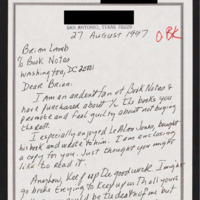 SAN ANTONIO, TEXAS
27 August 1997
OBK
Brian Lamb
% Book Notes
Washington, DC 20001
Dear Brian:
I am an ardent fan of Book Notes &
have purchased about ⅓ the books you
promote and feel guilty about not buying
them all.
I especially enjoyed Le Alan Jones, bought
his book and wrote to him. I am enclosing
a copy for you. Just thought you might
like to read it.
Anyhow, keep up the good work. I might
go broke trying to keep up with all your
could be
but